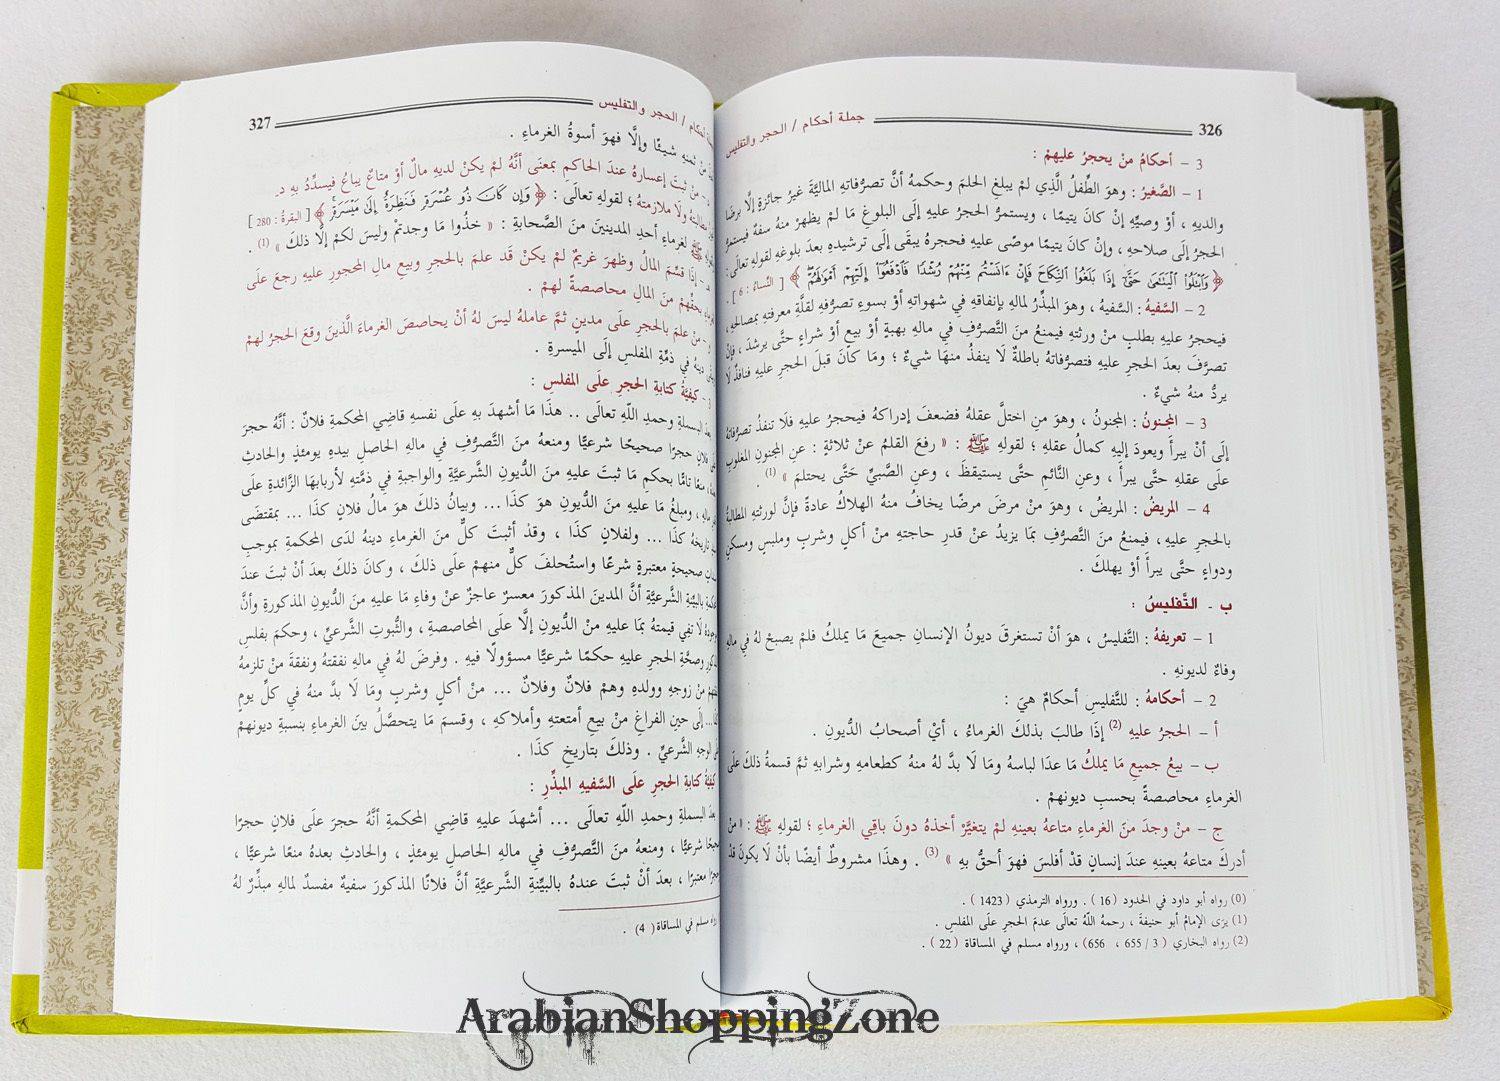 326
جملة أحكام / الحجر والتفليس
3 - أحكامُ منْ يحجرُ عليهمْ :
1 - الصَّغيرُ : وهوَ الطِّفلُ الَّذي لمْ يبلغِ الحلمَ وحكمهُ أنَّ تصرُّفاتهِ الماليَّةَ غيرُ جائزةٍ إلَّا برضَا
والديهِ ، أوْ وصيِّهِ إنْ كانَ يتيمًا ، ويستمرُّ الحجرُ عليهِ إلَى البلوغِ مَا لمْ يظهرْ منهُ سفهٌ فيستمرُّ
الحجرُ إلَى صلاحهِ ، وإنْ كانَ يتيمًا موصًى عليهِ فحجرهُ يبقَى إلَى ترشيدهِ بعدَ بلوغهِ لقولهِ تعالَى :
﴿ وَٱبْتَلُوا۟ ٱلْيَتَـٰمَىٰ حَتَّىٰٓ إِذَا بَلَغُوا۟ ٱلنِّكَاحَ فَإِنْ ءَانَسْتُم مِّنْهُمْ رُشْدًا فَٱدْفَعُوٓا۟ إِلَيْهِمْ أَمْوَٰلَهُمْ ﴾ [ النِّساءُ : 6 ] .
2 - السَّفيهُ : السَّفيهُ ، وهوَ المبذِّرُ لمالهِ بإنفاقهِ في شهواتهِ أوْ بسوءِ تصرُّفهِ لقلَّةِ معرفتهِ بمصالحهِ ،
فيحجرُ عليهِ بطلبٍ منْ ورثتهِ فيمنعُ منَ التَّصرُّفِ في مالهِ بهبةٍ أوْ بيعٍ أوْ شراءٍ حتَّى يرشدَ ، فإنْ
تصرَّفَ بعدَ الحجرِ عليهِ فتصرُّفاتهُ باطلةٌ لَا ينفذُ منهَا شيءٌ ؛ ومَا كانَ قبلَ الحجرِ عليهِ فنافذٌ لَا
يردُّ منهُ شيءٌ .
3 - المجنونُ : المجنونُ ، وهوَ منِ اختلَّ عقلهُ فضعفَ إدراكهُ فيحجرُ عليهِ فلَا تنفذُ تصرُّفاتهُ
إلَى أنْ يبرأَ ويعودَ إليهِ كمالُ عقلهِ ؛ لقولهِ ﷺ : « رفعَ القلمُ عنْ ثلاثةٍ : عنِ المجنونِ المغلوبِ
علَى عقلهِ حتَّى يبرأَ ، وعنِ النَّائمِ حتَّى يستيقظَ ، وعنِ الصَّبيِّ حَتَّى يحتلمَ » (1) .
4 - المريضُ : المريضُ ، وهوَ منْ مرضَ مرضًا يخافُ منهُ الهلاكُ عادةً فإنَّ لورثتهِ المطالبةُ
بالحجرِ عليهِ ، فيمنعُ منَ التَّصرُّفِ بمَا يزيدُ عنْ قدرِ حاجتهِ منْ أكلٍ وشربٍ وملبسٍ ومسكنٍ
ودواءٍ حتَّى يبرأَ أوْ يهلكَ .
ب - التَّفليسُ :
1 - تعريفهُ : التَّفليسُ ، هوَ أنْ تستغرقَ ديونُ الإنسانِ جميعَ مَا يملكُ فلمْ يصبحْ لهُ في مالهِ
وفاءٌ لديونهِ .
2 - أحكامهُ : للتَّفليسِ أحكامٌ هيَ :
أ - الحجرُ عليهِ (2) إذَا طالبَ بذلكَ الغرماءُ ، أيْ أصحابُ الدُّيونِ .
ب - بيعُ جميعِ مَا يملكُ مَا عدَا لباسهُ ومَا لَا بدَّ لهُ منهُ كطعامهِ وشرابهِ ثمَّ قسمةُ ذلكَ علَى
الغرماءِ محاصصةً بحسبِ ديونهمْ .
ج - منْ وجدَ منَ الغرماءِ متاعهُ بعينهِ لمْ يتغيَّرْ أخذهُ دونَ باقِي الغرماءِ ؛ لقولهِ ﷺ : « منْ
أدركَ متاعهُ بعينهِ عندَ إنسانٍ قدْ أفلسَ فهوَ أحقُّ بهِ » (3) . وهذَا مشروطٌ أيضًا بأنْ لَا يكونَ قدْ
(0) رواه أبو داود في الحدود ( 16 ) . ورواه الترمذي ( 1423 ) .
(1) يرَى الإمامُ أبو حنيفةَ ، رحمهُ اللّهُ تعالَى عدمَ الحجرِ علَى المفلسِ .
(2) رواه البخاري ( 3 / 655 ، 656 ) ، ورواه مسلم في المساقاة ( 22 ) .
327
أحكام / الحجر والتفليس
منْ ثمنهِ شيئًا وإلَّا فهوَ أسوةُ الغرماءِ .
منْ ثبتَ إعسارهُ عندَ الحاكمِ بمعنَى أنَّهُ لمْ يكنْ لديهِ مالٌ أوْ متاعٌ يباعُ فيسدِّدُ بهِ د
مطالبتهُ ولَا ملازمتهُ ؛ لقولهِ تعالَى : ﴿ وَإِن كَانَ ذُو عُسْرَةٍ فَنَظِرَةٌ إِلَىٰ مَيْسَرَةٍ ﴾ [ البقرةُ : 280 ]
ﷺ لغرماءِ أحدِ المدينينَ منَ الصَّحابةِ : « خذُوا مَا وجدتمْ وليسَ لكمْ إلَّا ذلكَ » (1) .
إذَا قسِّمَ المالُ وظهرَ غريمٌ لمْ يكنْ قدْ علمَ بالحجرِ وبيعِ مالِ المحجورِ عليهِ رجعَ علَى
بحقِّهمْ منَ المالِ محاصصةً لهمْ .
منْ علمَ بالحجرِ علَى مدينٍ ثمَّ عاملهُ ليسَ لهُ أنْ يحاصصَ الغرماءَ الَّذينَ وقعَ الحجرُ لهمْ
دينهُ في ذمَّةِ المفلسِ إلَى الميسرةِ .
كيفيَّةُ كتابةِ الحجرِ علَى المفلسِ :
بعدَ البسملةِ وحمدِ اللّهِ تعالَى .. هذَا مَا أشهدَ بهِ علَى نفسهِ قاضِي المحكمةِ فلانٌ : أنَّهُ حجرَ
فلانٍ حجرًا صحيحًا شرعيًّا ومنعهُ منَ التَّصرُّفِ في مالهِ الحاصلِ بيدهِ يومئذٍ والحادثِ
منعًا تامًّا بحكمِ مَا ثبتَ عليهِ منَ الدُّيونِ الشَّرعيَّةِ والواجبةِ في ذمَّتهِ لأربابهَا الزَّائدةِ علَى
مالهِ ، ومبلغُ مَا عليهِ منَ الدُّيونِ هوَ كذَا ... وبيانُ ذلكَ هوَ مالُ فلانٍ كذَا ... بمقتضَى
تاريخهُ كذَا ... ولفلانٍ كذَا ، وقدْ أثبتَ كلٌّ منَ الغرماءِ دينهُ لدَى المحكمةِ بموجبِ
صحيحةٍ معتبرةٍ شرعًا واستُحلفَ كلٌّ منهمْ علَى ذلكَ ، وكانَ ذلكَ بعدَ أنْ ثبتَ عندَ
بالبيِّنةِ الشَّرعيَّةِ أنَّ المدينَ المذكورَ معسرٌ عاجزٌ عنْ وفاءِ مَا عليهِ منَ الدُّيونِ المذكورةِ وأنَّ
لَا تفِي قيمتهُ بمَا عليهِ منَ الدُّيونِ إلَّا علَى المحاصصةِ ، والثُّبوتِ الشَّرعيِّ ، وحكمَ بفلسِ
وصحَّةِ الحجرِ عليهِ حكمًا شرعيًّا مسؤولًا فيهِ . وفرضَ لهُ في مالهِ نفقتهُ ونفقةَ منْ تلزمهُ
منْ زوجهِ وولدهِ وهمْ فلانٌ وفلانٌ ... منْ أكلٍ وشربٍ ومَا لَا بدَّ منهُ في كلِّ يومٍ
... إلَى حينِ الفراغِ منْ بيعِ أمتعتهِ وأملاكهِ ، وقسمَ مَا يتحصَّلُ بينَ الغرماءِ بنسبةِ ديونهمْ
الوجهِ الشَّرعيِّ . وذلكَ بتاريخِ كذَا .
كيفيَّةُ كتابةِ الحجرِ علَى السَّفيهِ المبذِّرِ :
بعدَ البسملةِ وحمدِ اللّهِ تعالَى ... أشهدَ عليهِ قاضِي المحكمةِ أنَّهُ حجرَ علَى فلانٍ حجرًا
صحيحًا شرعيًّا ، ومنعهُ منَ التَّصرُّفِ في مالهِ الحاصلِ يومئذٍ ، والحادثِ بعدهُ منعًا شرعيًّا ،
حجرًا معتبرًا ، بعدَ أنْ ثبتَ عندهُ بالبيِّنةِ الشَّرعيَّةِ أنَّ فلانًا المذكورَ سفيهٌ مفسدٌ لمالهِ مبذِّرٌ لهُ
رواه مسلم في المساقاة ( 4 ) .
ArabianShoppingZone